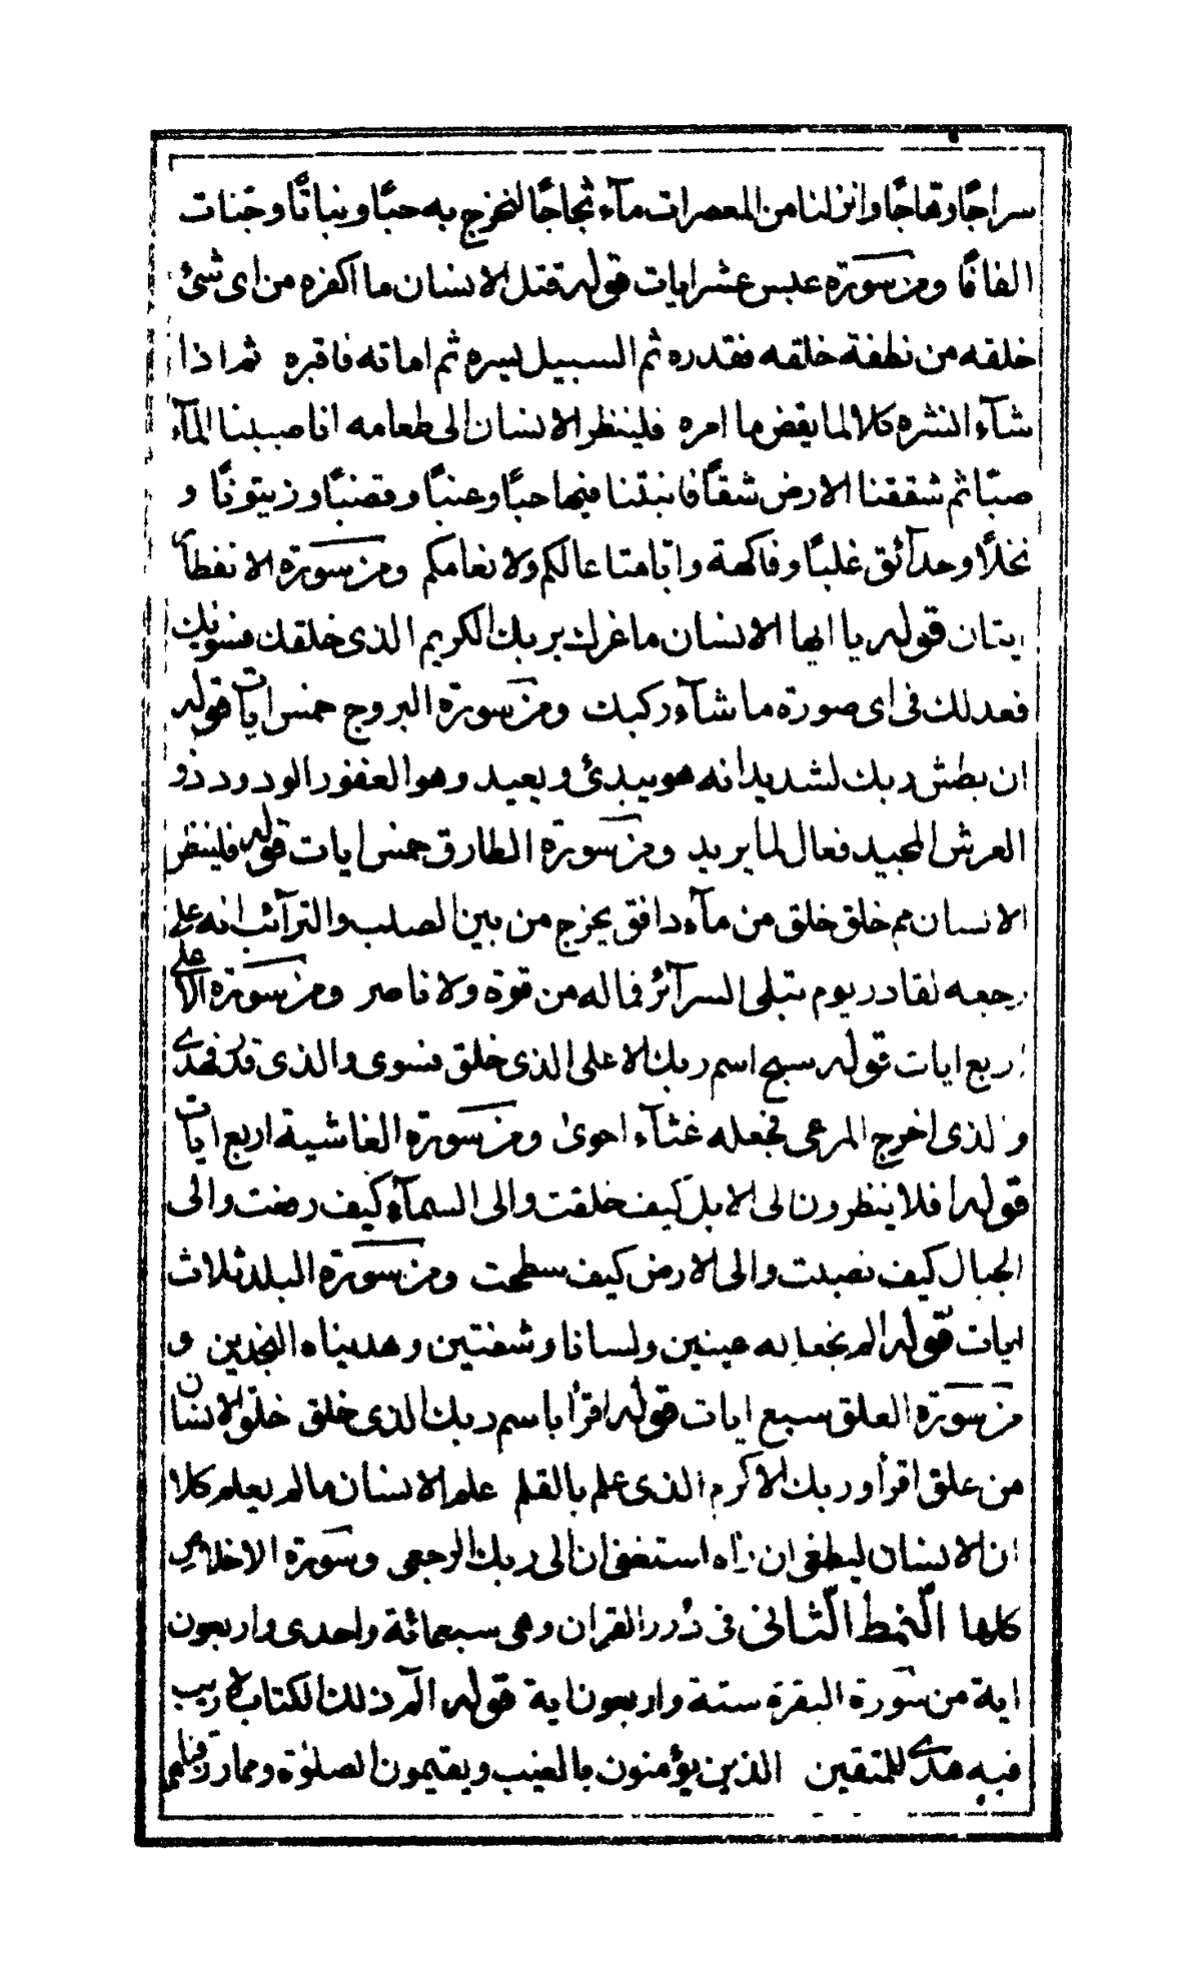 سراجًا وهاجًا وانزلنا من المعصرات مآء ثجاجًا لنخرج به حبًا ونباتًا وجنات
الفافًا ومن سورة عبس عشر ايات قوله قتل الانسان ما اكفره من اى شئ
خلقه من نطفة خلقه فقدره ثم السبيل يسره ثم اماته فاقبره ثم اذا
شآء انشره كلا لما يقض ما امره فلينظر الانسان الى طعامه انا صببنا المآء
صبًا ثم شققنا الارض شقًا فانبتنا فيها حبًا وعنبًا وقضبًا وزيتونًا و
نخلًا وحدآئق غلبًا وفاكهة وابًا متاعا لكم ولانعامكم ومن سورة الانفطار
ايتان قوله يا ايها الانسان ما غرك بربك الكريم الذى خلقك فسويك
فعدلك فى اى صورة ما شآء ركبك ومن سورة البروج خمس ايات قوله
ان بطش ربك لشديد انه هو يبدئ ويعيد وهو الغفور الودود ذو
العرش المجيد فعال لما يريد ومن سورة الطارق خمس ايات قوله فلينظر
الانسان مم خلق خلق من مآء دافق يخرج من بين الصلب والترآئب انه على
رجعه لقادر يوم تبلى السرآئر فما له من قوة ولا ناصر ومن سورة الاعلى
اربع ايات قوله سبح اسم ربك الاعلى الذى خلق فسوى والذى قدر فهدى
والذى اخرج المرعى فجعله غثآء احوى ومن سورة الغاشية اربع ايات
قوله افلا ينظرون الى الابل كيف خلقت والى السمآء كيف رفعت والى
الجبال كيف نصبت والى الارض كيف سطحت ومن سورة البلد ثلاث
ايات قوله الم نجعل له عينين ولسانا وشفتين وهديناه النجدين و
من سورة العلق سبع ايات قوله اقرأ باسم ربك الذى خلق خلق الانسان
من علق اقرأ وربك الاكرم الذى علم بالقلم علم الانسان ما لم يعلم كلا
ان الانسان ليطغى ان راه استغنى ان الى ربك الرجعى وسورة الاخلاص
كلها النمط الثانى فى درر القران وهى سبعمائة واحدى واربعون
اية من سورة البقرة ستة واربعون اية قوله الم ذلك الكتاب لا ريب
فيه هدى للمتقين الذين يؤمنون بالغيب ويقيمون الصلوة ومما رزقناهم